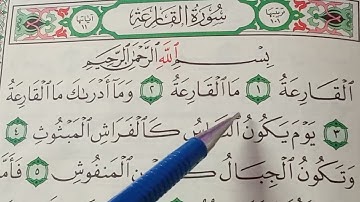 سُورَةُ القَارِعَةِ
بِسْمِ اللَّهِ الرَّحْمَٰنِ الرَّحِيمِ
الْقَارِعَةُ ١ مَا الْقَارِعَةُ ٢ وَمَا أَدْرَاكَ مَا الْقَارِعَةُ
٣ يَوْمَ يَكُونُ النَّاسُ كَالْفَرَاشِ الْمَبْثُوثِ ٤
وَتَكُونُ الْجِبَالُ الْمَنْفُوشِ ٥ فَأَمَّا